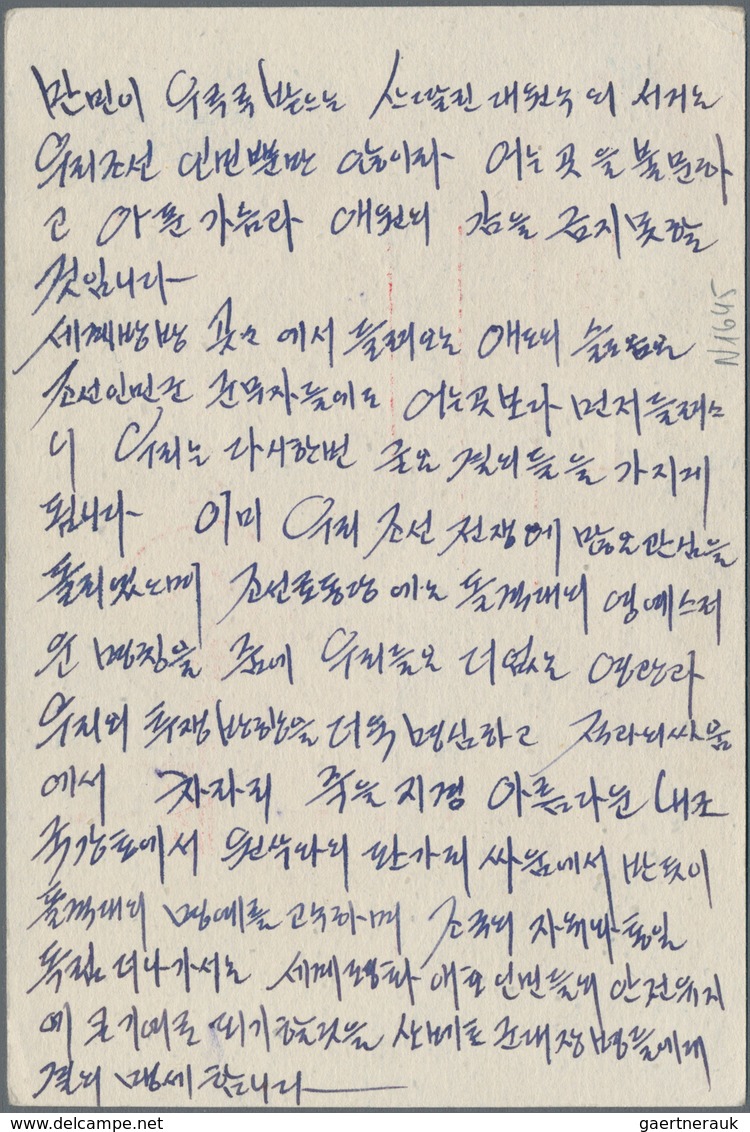 만민이 우럭럭 받드는 스딸린 대원수의 서거는
우리조선 인민뿐만 아니라 어는 곳을 불문하
고 아픈 가슴과 애원의 감을 금치못할
것입니다
세계방방 곳곳에서 들려오는 애도의 슬픔은
조선인민군 군무자들에도 어는곳보다 먼저 들려
니 우리는 다시한번 굳은 결의들을 가지게
됩니다 이미 우리 조선 전쟁에 많은 관심을
돌리였으며 조선로동당에는 돌격대의 영예스러
운 명칭을 줌에 우리들은 더없는 영광과
우리의 투쟁방향을 더욱 명심하고 적과의 싸움
에서 차라리 죽을 지경 아름다운 내조
국강토에서 원수와의 판가리 싸움에서 반듯이
돌격대의 명예를 고수하며 조국의 자유와 통일
독립 더나가서는 세계평화 애호 인민들의 안전유지
에 큰 기여로 되기 할것을 군대장병들에게
결의 맹세 합니다
N1645
gaertnerauk